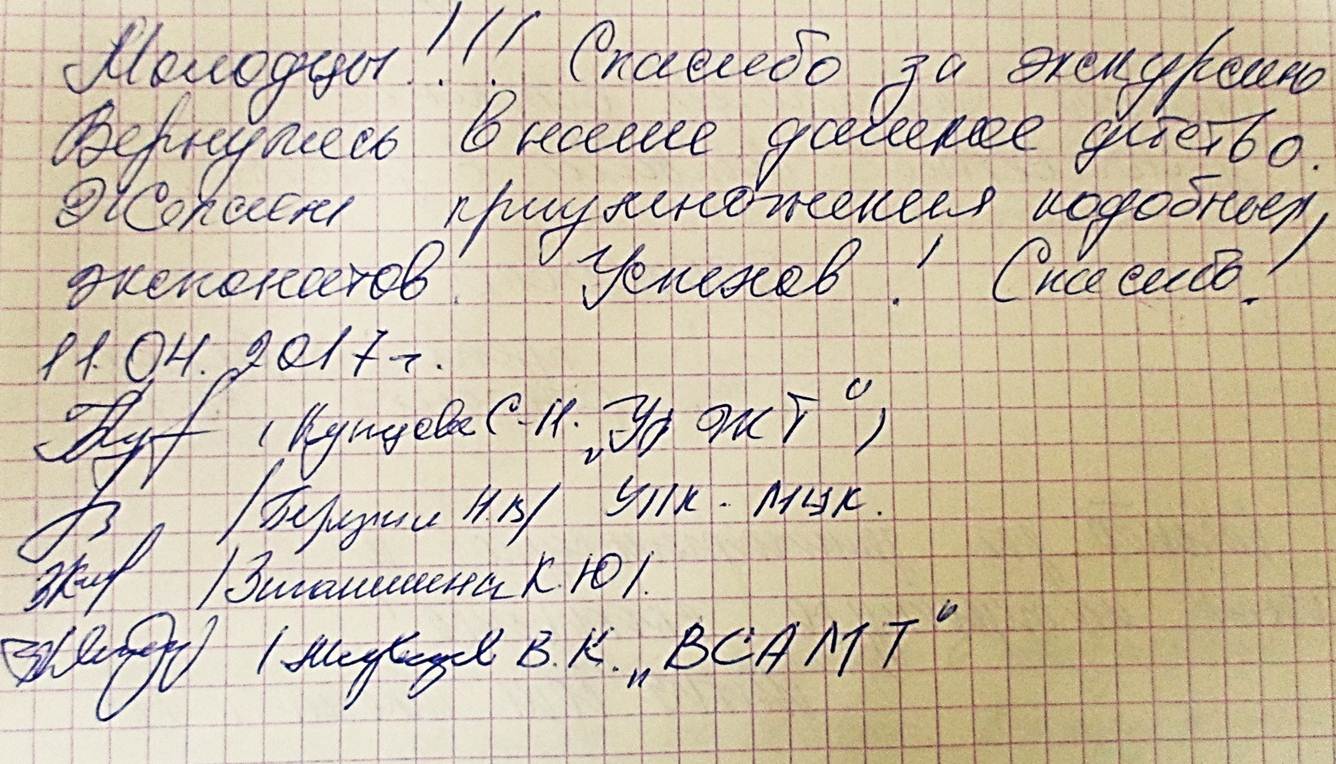 Молодцы!!! Спасибо за экскурсию
Вернулись в наше далекое детство.
Желаем приумножения подобных,
экспонатов. Успехов! Спасибо!
11.04.2017 г.
/Кунцева С.Н. „Ур ЖТ"/
/Берзин Н.В/ УПК - МЦК.
/Зиганшина К.Ю/.
В.К. „ВСАМТ"